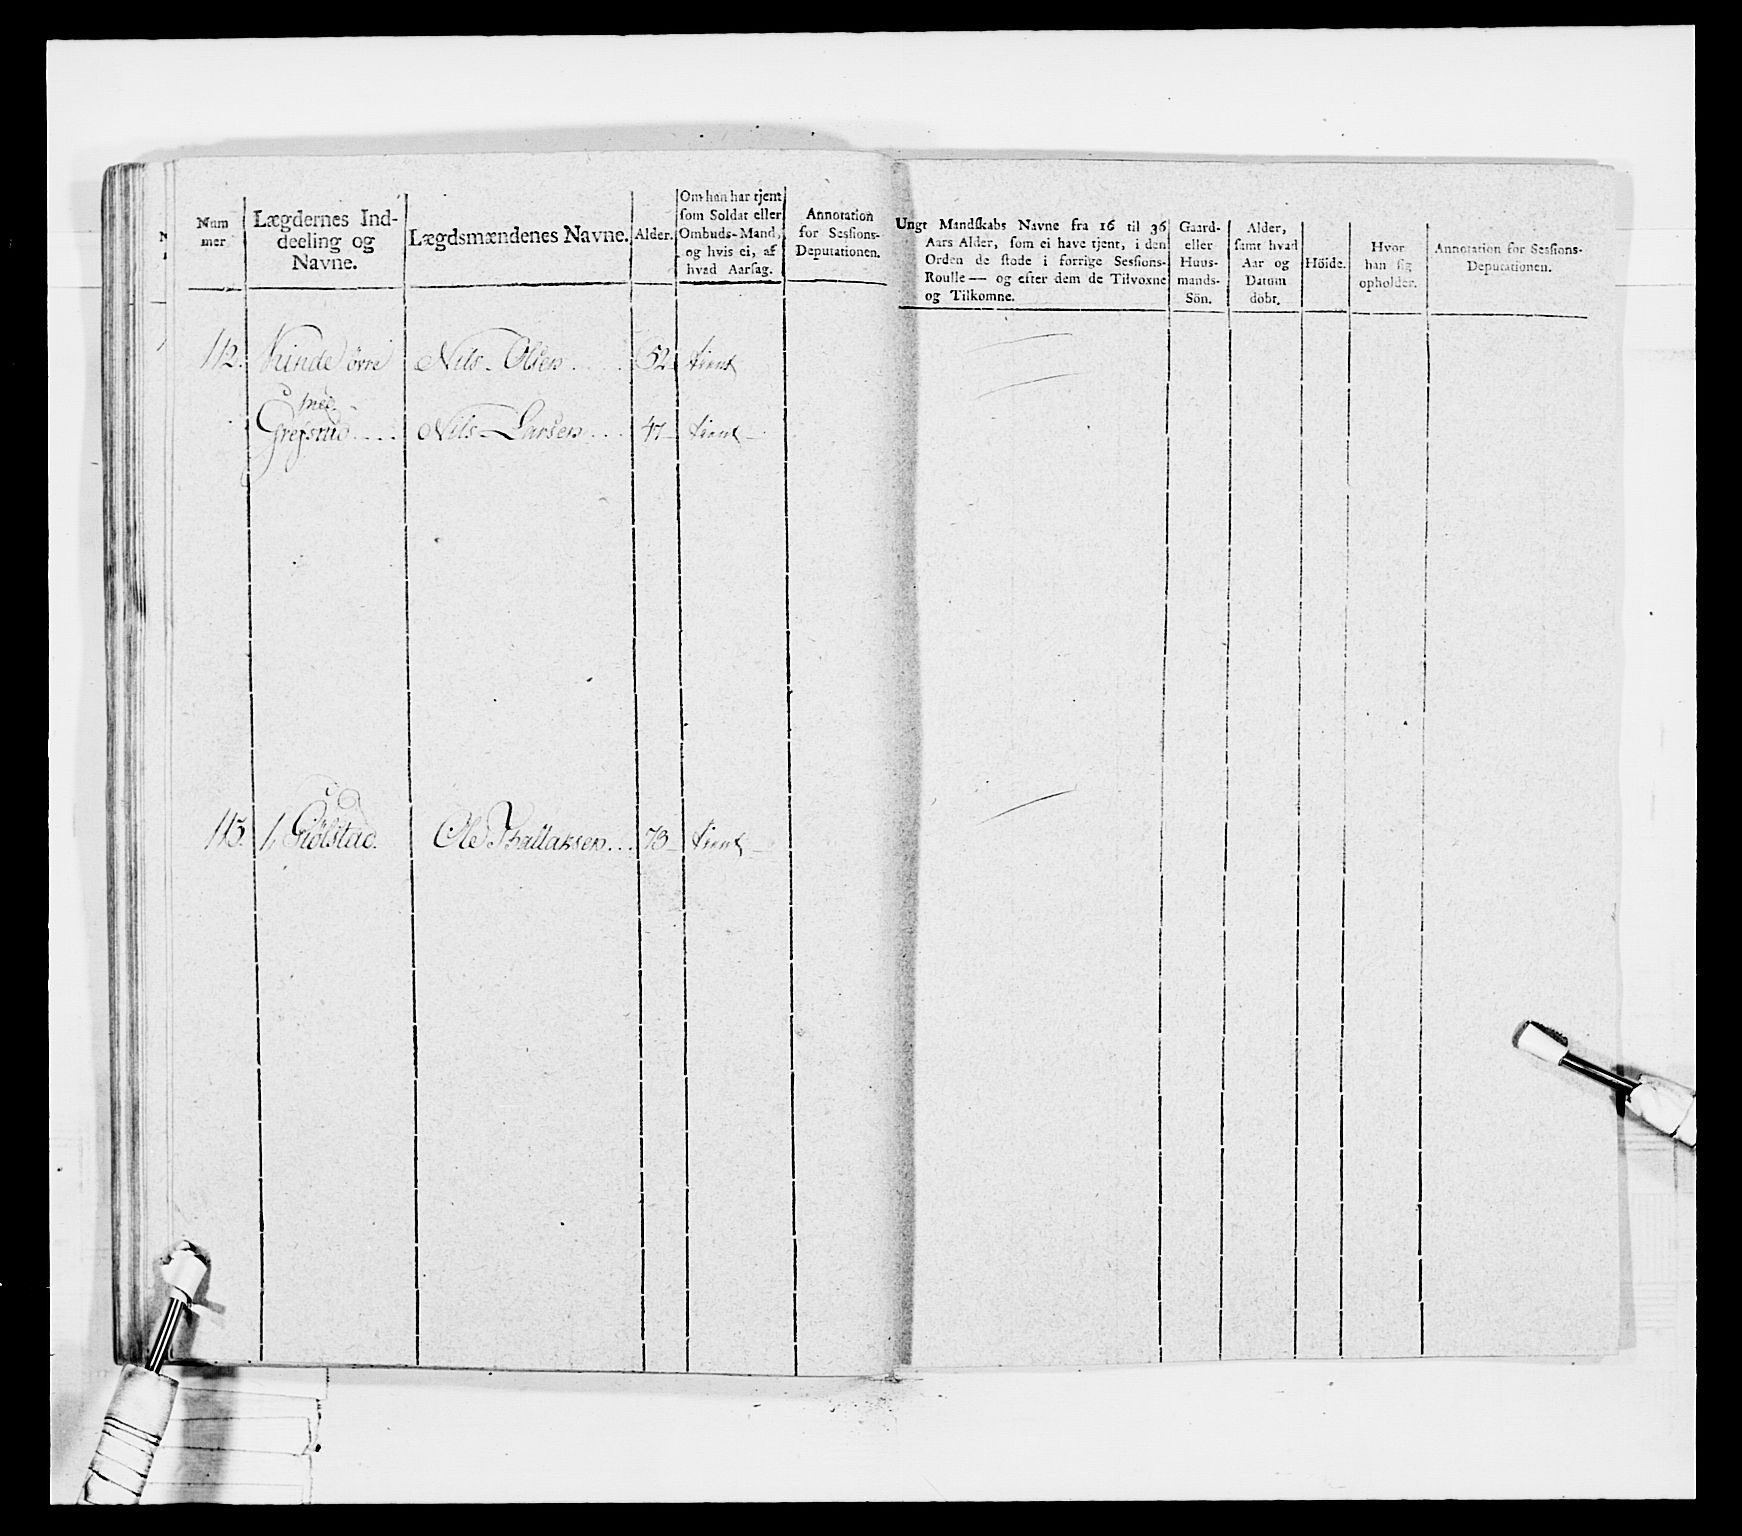 Num
mer
Lægdernes Ind-
deeling og
Navne.
Lægdsmændenes Navne.
Alder.
Om han har tjent
som Soldat eller
Ombuds-Mand,
og hvis ei, af
hvad Aarsag.
Annotation
for Sessions-
Deputationen.
112. Kinde övre Nils Olsen 52 tient
med
Grefsrud Nils Larsen 47 tient
113. Giölstad. Ole Thallaksen 73 tient
Ungt Mandskabs Navne fra 16 til 36
Aars Alder, som ei have tjent, i den
Orden de stode i forrige Sessions-
Roulle — og efter dem de Tilvoxne
og Tilkomne.
Gaard-
eller
Huus-
mands-
Sön.
Alder,
samt hvad
Aar og
Datum
döbt.
Höide.
Hvor
han sig
opholder.
Annotation for Sessions-
Deputationen.